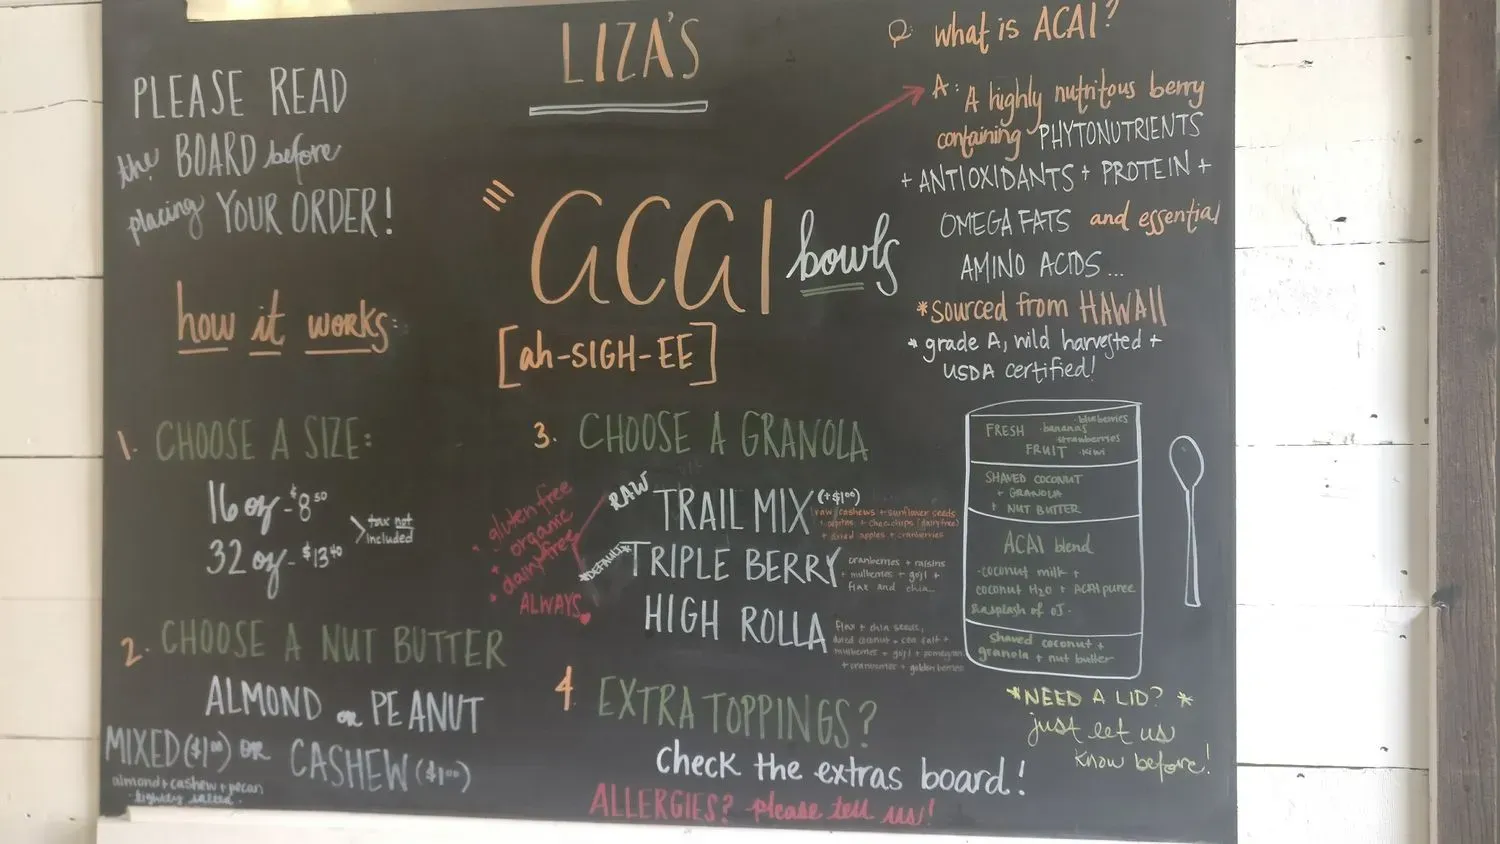 PLEASE READ
the BOARD before
placing YOUR ORDER!
how it works:
1. CHOOSE A SIZE:
16 oz - $8.50
32 oz - $13.40
tax not
included
2. CHOOSE A NUT BUTTER
ALMOND or PEANUT
MIXED ($1.00) OR CASHEW ($1.00)
almond + cashew + pecan
- lightly salted -
LIZA'S
"ACAI bowls
[ah-SIGH-EE]
3. CHOOSE A GRANOLA
• gluten free
organic
• dairy free
• ALWAYS
RAW
TRAIL MIX (+$1.00)
raw cashews + sunflower seeds
+ choc chips (dairy free)
+ dried apples + cranberries
*DEFAULT*
TRIPLE BERRY
cranberries + raisins
+ mulberries + goji +
flax and chia
HIGH ROLLA
flax + chia seeds,
dried coconut + sea salt +
mulberries + goji +
+ cranberries + golden berries
4 EXTRA TOPPINGS?
check the extras board!
ALLERGIES? please tell us!
Q: what is ACAI?
A: A highly nutritous berry
containing PHYTONUTRIENTS
+ ANTIOXIDANTS + PROTEIN +
OMEGA FATS and essential
AMINO ACIDS...
*sourced from HAWAII
* grade A, wild harvested +
USDA certified!
FRESH
FRUIT
• blueberries
• bananas
strawberries
• kiwi
SHAVED COCONUT
+ GRANOLA
+ NUT BUTTER
ACAI blend
• coconut milk +
coconut H2O + ACAI puree
+ a splash of OJ.
shaved coconut +
granola + nut butter
*NEED A LID? *
just let us
know before!